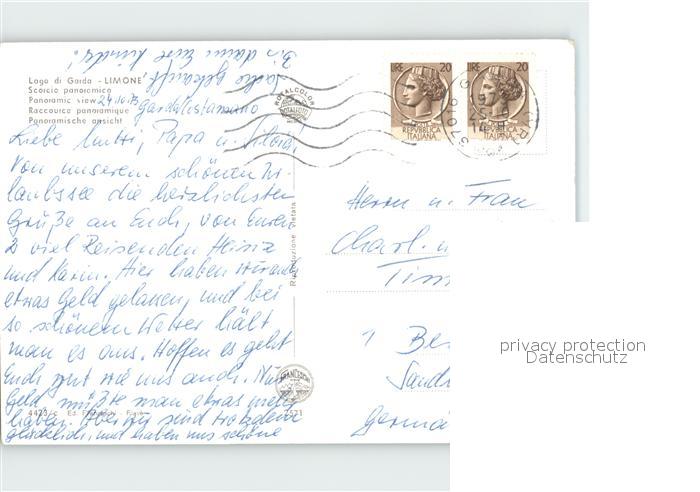 Lago di Garda - LIMONE
Scorcio panoramico
Panoramic view
Raccourci panoramique
Panoramische ansicht
24.10.75
Liebe Mutti, Papa u. Silvia!
Von unserem schönen Ur-
laubssee die herzlichsten
Grüße an Euch, von Euren
2 viel Reisenden Heinz
und Karin. Hier haben wir auch
etwas Geld gelassen, und bei
so schönem Wetter hält
man es aus. Hoffen es geht
Euch gut wie uns auch. Nur
Geld müßte man etwas mehr
haben. Aber wir sind trotzdem
glücklich, und haben uns schöne
Bis dann Eure Kinder!
ROYALCOLOR
LIRE 20
REPUBBLICA
ITALIANA
LIRE 20
REPUBBLICA
ITALIANA
37016
Riproduzione Vietata
Herrn u. Frau
Charl. u
Tim
1 Be
Sand
Germa
4423/c Ed.
privacy protection
Datenschutz